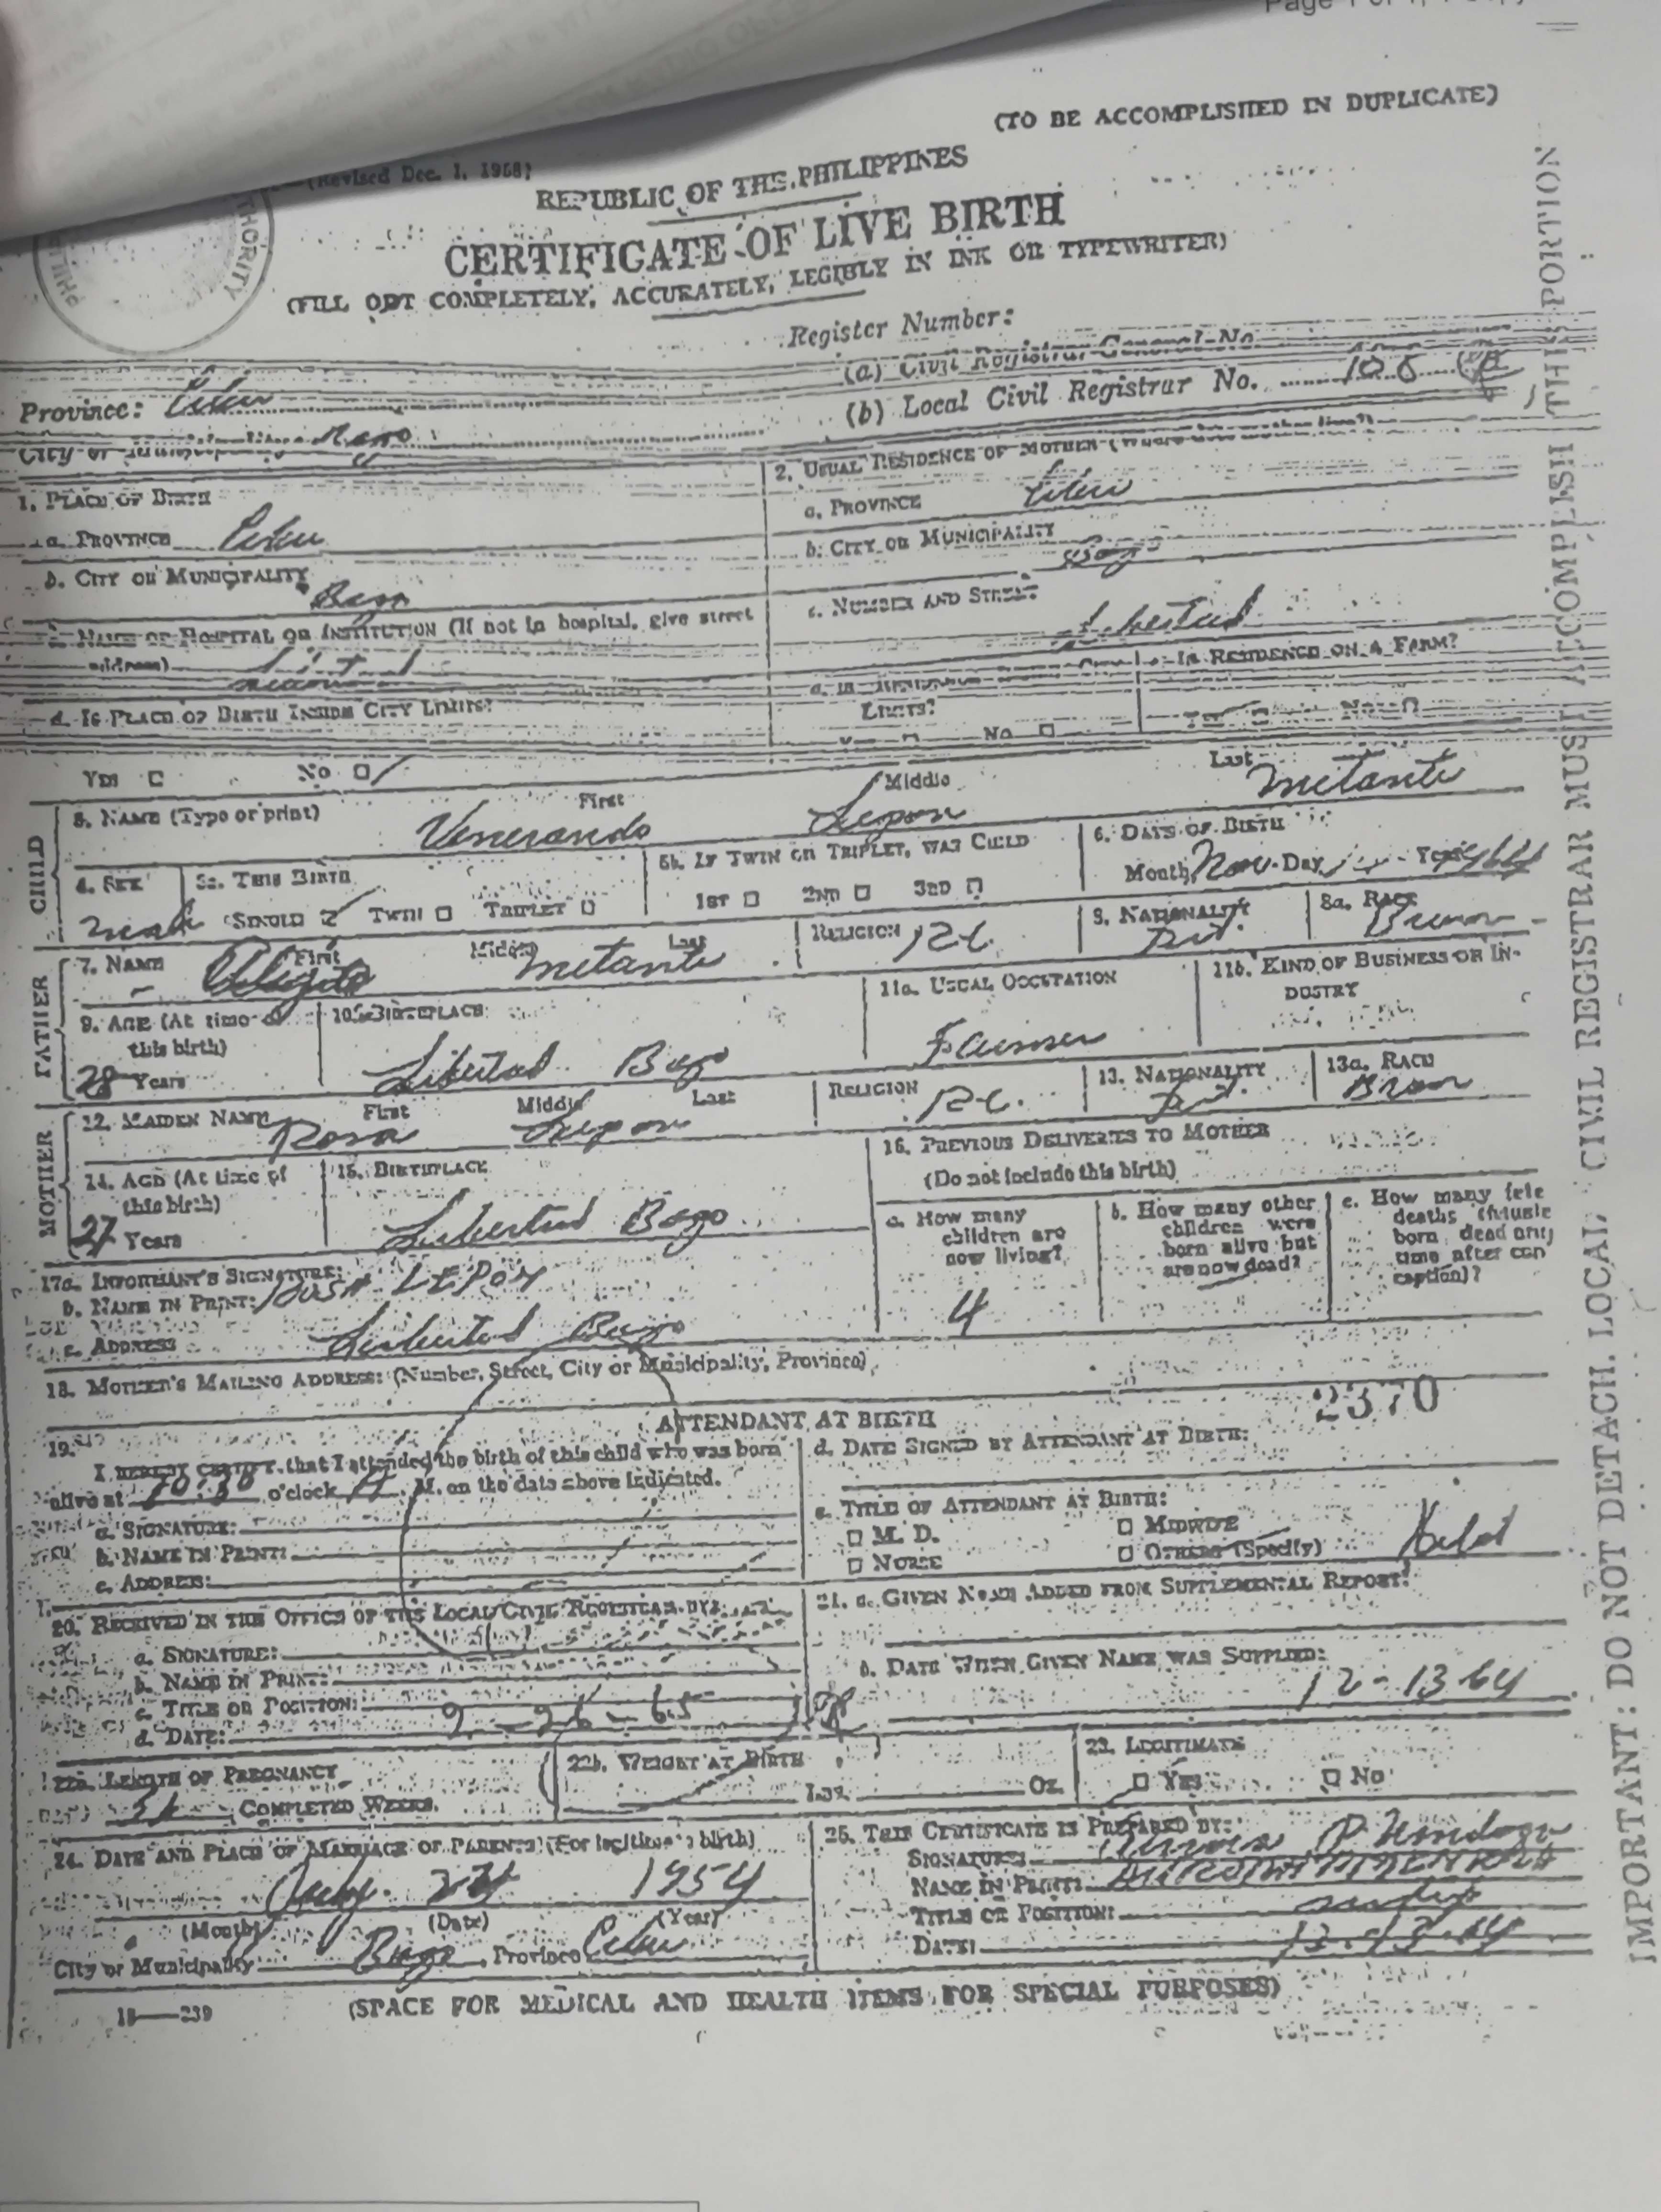 (TO BE ACCOMPLISHED IN DUPLICATE)
(Revised Dec. 1, 1958)
REPUBLIC OF THE PHILIPPINES
CERTIFICATE OF LIVE BIRTH
(FILL OUT COMPLETELY, ACCURATELY, LEGIBLY IN INK OR TYPEWRITER)
Register Number:
(a) Civil Registrar General No.
Province: Cebu
(b) Local Civil Registrar No.
City or Municipality
1. PLACE OF BIRTH
2. USUAL RESIDENCE OF MOTHER
a. PROVINCE Cebu
a. PROVINCE Cebu
b. CITY OR MUNICIPALITY
b. CITY OR MUNICIPALITY
c. NUMBER AND STREET Libertad
c. NAME OF HOSPITAL OR INSTITUTION (If not in hospital, give street address)
d. IS PLACE OF BIRTH INSIDE CITY LIMITS?
LIMITS?
IS RESIDENCE ON A FARM?
YES NO
NO
CHILD
3. NAME (Type or print) First Venerando Middle Lepon Last Metante
4. SEX Male
5a. THIS BIRTH SINGLE TWIN TRIPLET
5b. IF TWIN OR TRIPLET, WAS CHILD 1ST 2ND 3RD
6. DATE OF BIRTH Month Nov. Day Year
FATHER
7. NAME First Middle Last Metante
RELIGION R.C.
8. NATIONALITY
8a. RACE Brown
9. AGE (At time of this birth) 28 Years
10. BIRTHPLACE Libertad Bogo
11a. USUAL OCCUPATION Farmer
11b. KIND OF BUSINESS OR INDUSTRY
MOTHER
12. MAIDEN NAME First Rosa Middle Lepon Last
RELIGION R.C.
13. NATIONALITY
13a. RACE Brown
14. AGE (At time of this birth) 27 Years
15. BIRTHPLACE Libertad Bogo
16. PREVIOUS DELIVERIES TO MOTHER
(Do not include this birth)
a. How many children are now living? 4
b. How many other children were born alive but are now dead?
c. How many fetal deaths (fetuse born dead any time after conception)?
17a. INFORMANT'S SIGNATURE:
b. NAME IN PRINT: ROSA LEPON
c. ADDRESS Libertad Bogo
18. MOTHER'S MAILING ADDRESS: (Number, Street, City or Municipality, Province)
2370
ATTENDANT AT BIRTH
19.
I HEREBY CERTIFY that I attended the birth of this child who was born
alive at 10:30 o'clock M. on the date above indicated.
a. SIGNATURE:
b. NAME IN PRINT:
c. ADDRESS:
d. DATE SIGNED BY ATTENDANT AT BIRTH:
e. TITLE OF ATTENDANT AT BIRTH:
M. D. MIDWIFE
NURSE OTHERS (Specify) Hilot
20. RECEIVED IN THE OFFICE OF THE LOCAL CIVIL REGISTRAR BY:
a. SIGNATURE:
b. NAME IN PRINT:
c. TITLE OR POSITION:
d. DATE: 2-26-65
21. a. GIVEN NAME ADDED FROM SUPPLEMENTAL REPORT:
b. DATE WHEN GIVEN NAME WAS SUPPLIED:
12-13 64
22a. LENGTH OF PREGNANCY
COMPLETED WEEKS.
22b. WEIGHT AT BIRTH
Lbs. Oz.
23. LEGITIMATE
YES NO
24. DATE AND PLACE OF MARRIAGE OF PARENTS (For legitimate birth)
24 1954
(Month) (Date) (Year)
City or Municipality Bogo, Province Cebu
25. THIS CERTIFICATE IS PREPARED BY:
SIGNATURE:
NAME IN PRINT:
TITLE OR POSITION:
DATE: 12-13-64
18—239
(SPACE FOR MEDICAL AND HEALTH ITEMS FOR SPECIAL PURPOSES)
IMPORTANT: DO NOT DETACH. LOCAL CIVIL REGISTRAR MUST ACCOMPLISH THIS PORTION